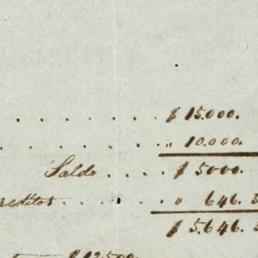 . . . . . . . . $ 15.000.
. . . . . . . . „ 10.000.
Saldo . . . . $ 5000.
reditos . . . . „ 646. 5
$ 5.646. 5
$ 12.500